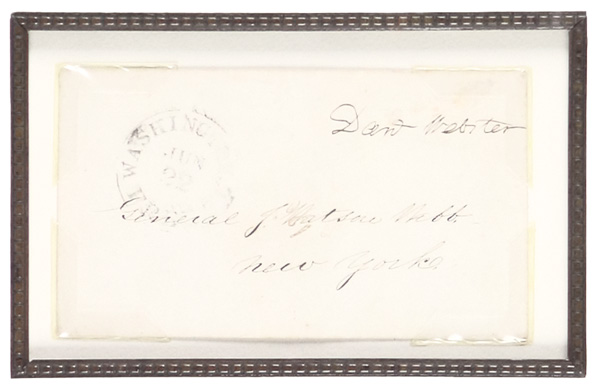 Danl Webster
WASHINGTON
JUN
22
General J. Watson Webb.
New York.